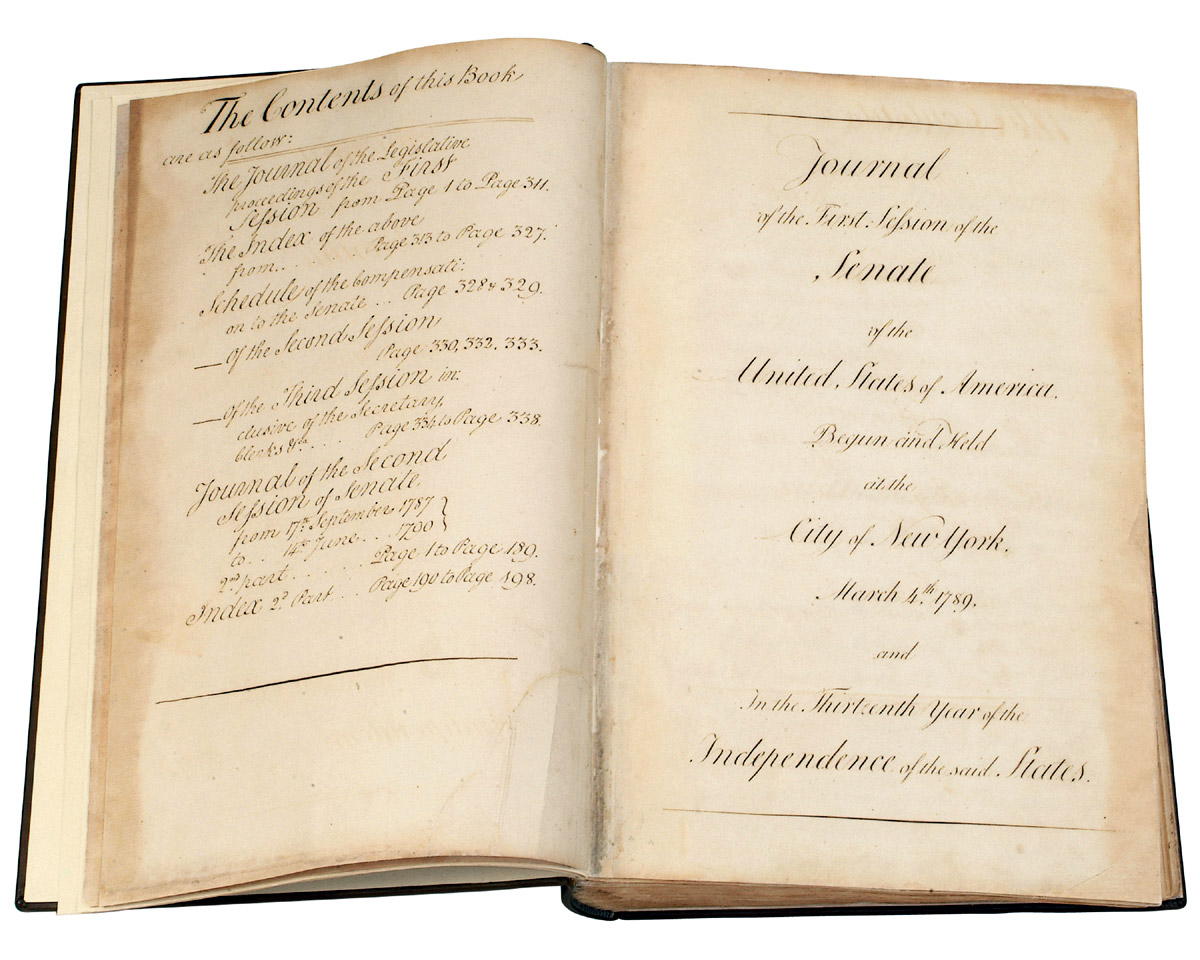 The Contents of this Book
are as follow:
The Journal of the Legislative
proceedings of the First
Session from Page 1 to Page 311.
The Index of the above
from . . . . . . . Page 313 to Page 327.
Schedule of the Compensati:
on to the Senate ... Page 328 & 329.
— of the Second Session
Page 330, 332. 333.
— of the Third Session in:
clusive of the Secretary,
Clerks &ca. . . . Page 334 to Page 338.
Journal of the Second
Session of Senate
from 17th September 1787
to . . 14th June . . . 1790
2nd part . . . . . . Page 1 to Page 189.
Index 2d. Part . . . Page 190 to Page 198.
Journal
of the First Session of the
Senate
of the
United States of America.
Begun and Held
at the
City of New York.
March 4th 1789.
and
In the Thirteenth Year of the
Independence of the said States.